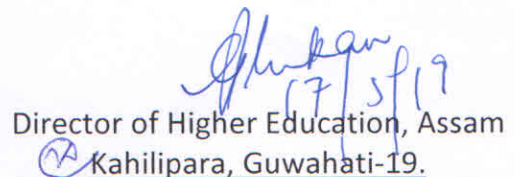 17/5/19
Director of Higher Education, Assam
Kahilipara, Guwahati-19.